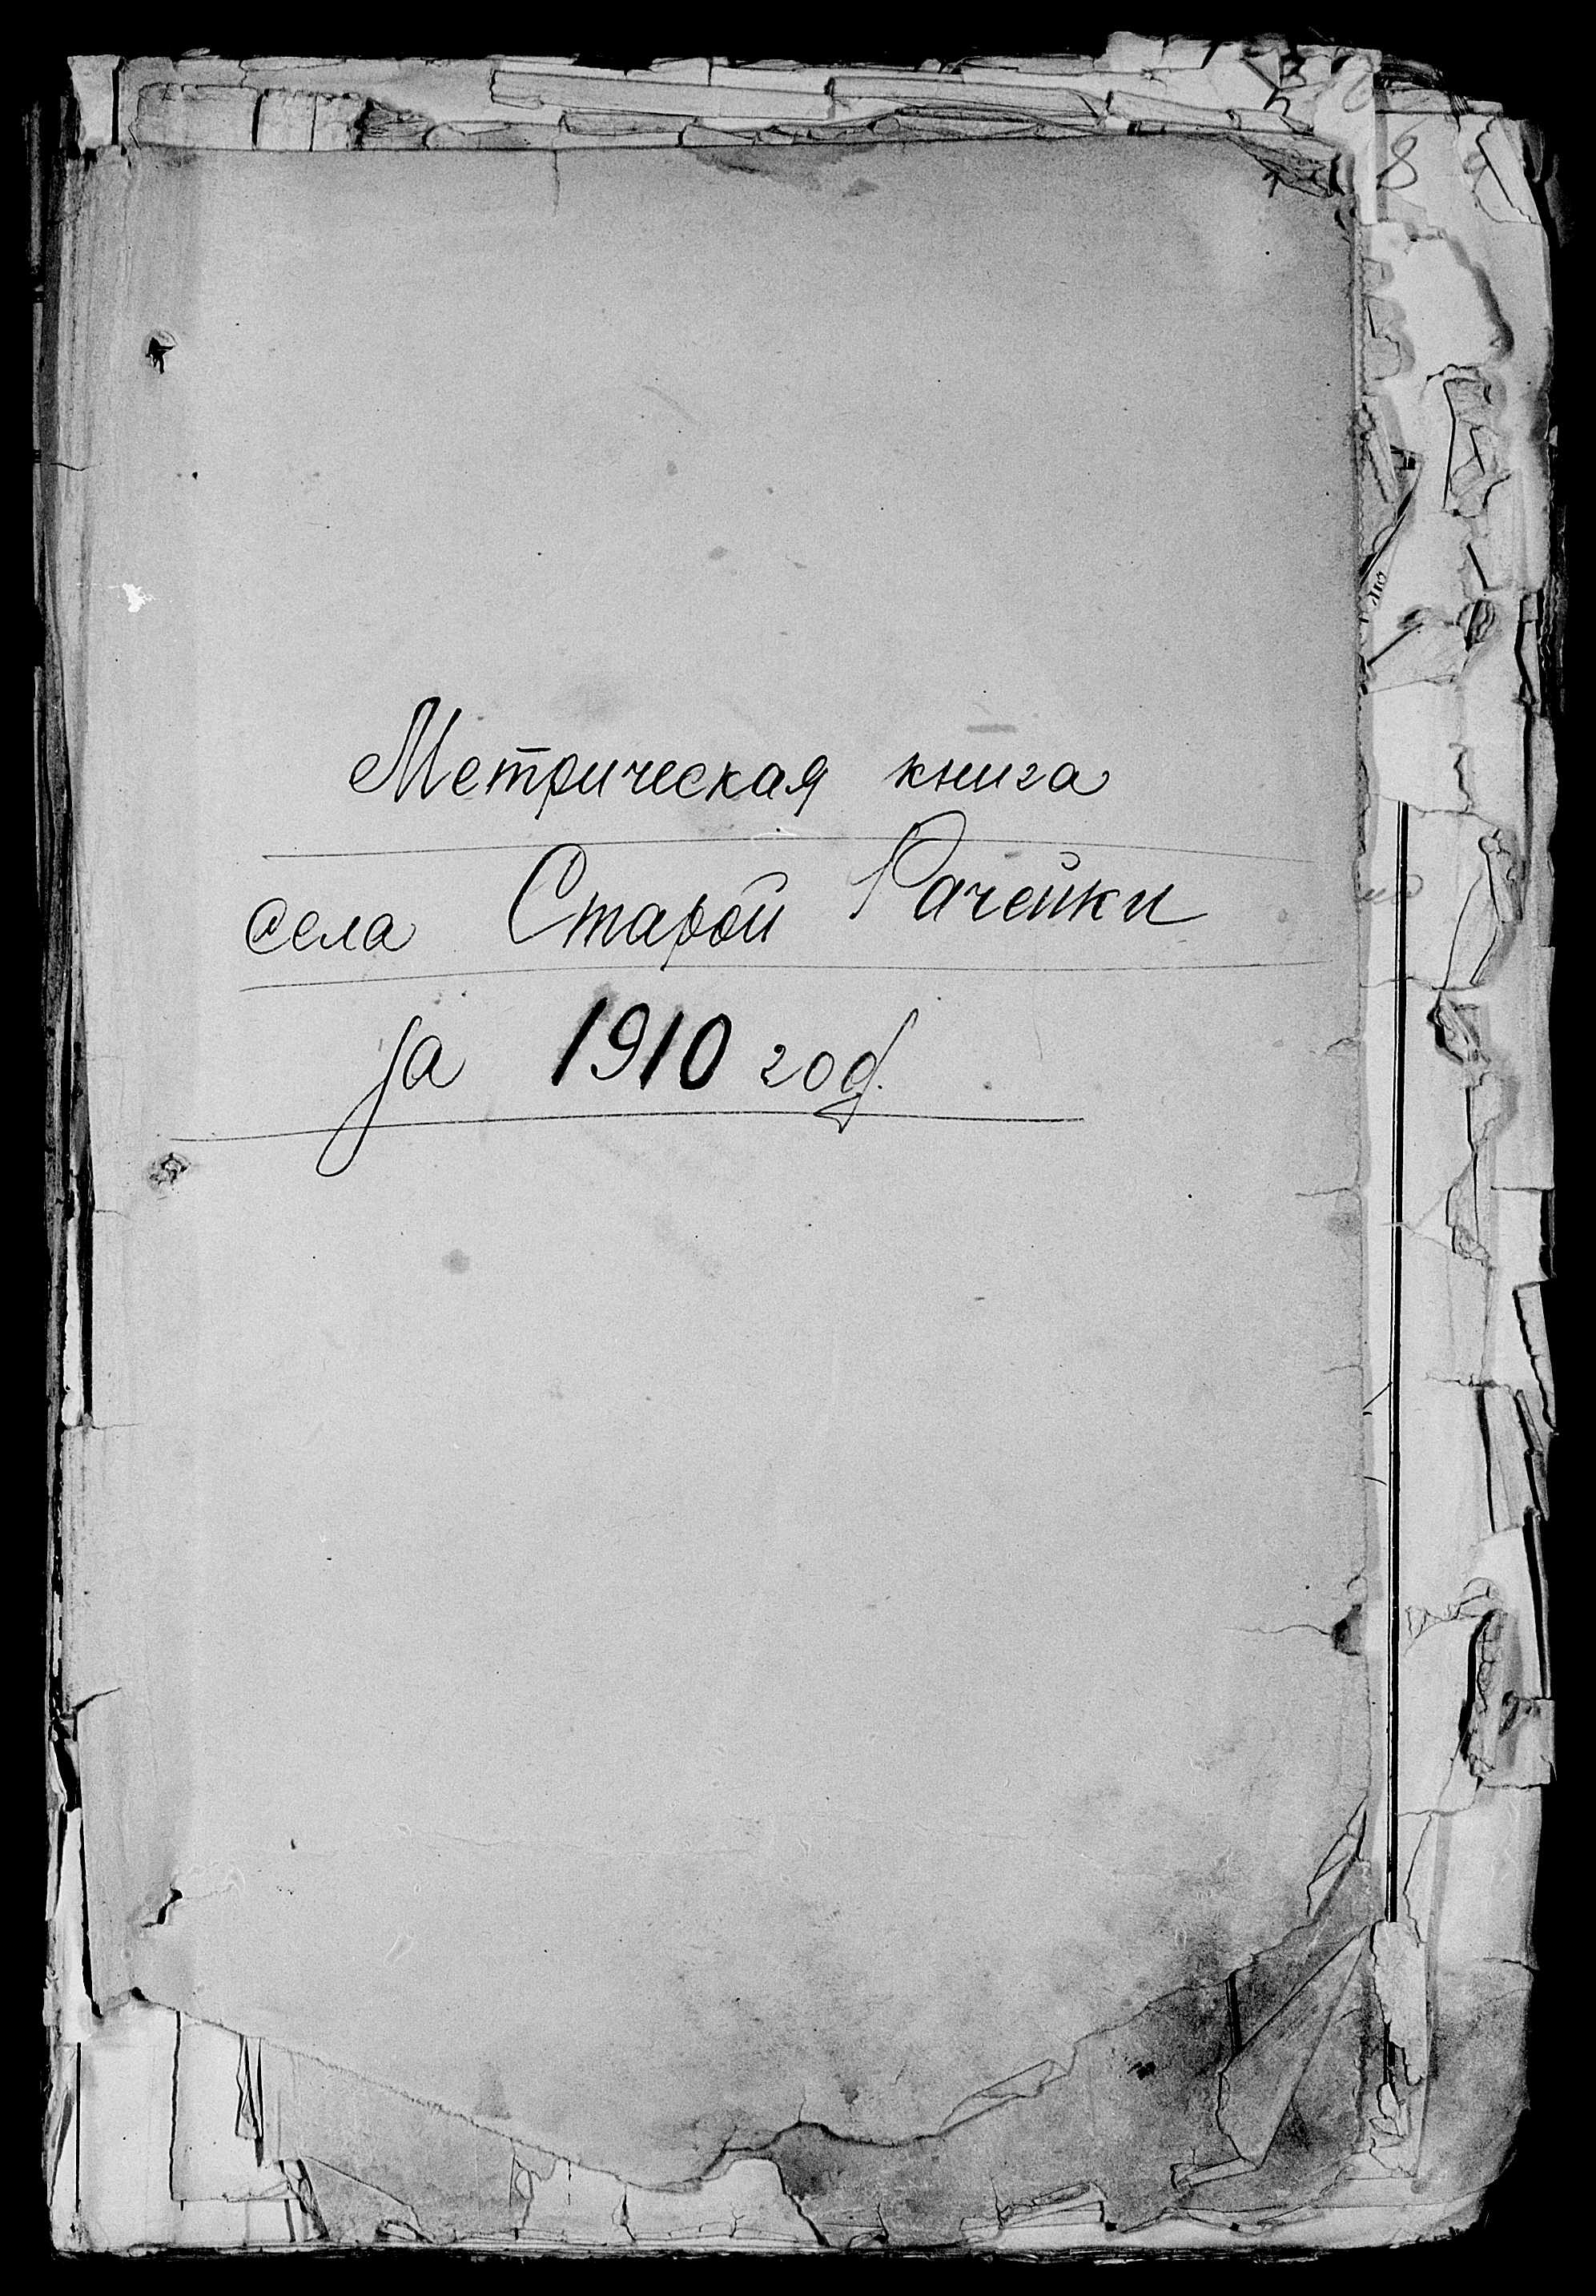 Метрическая книга
села Старой Рачейки
за 1910 год.